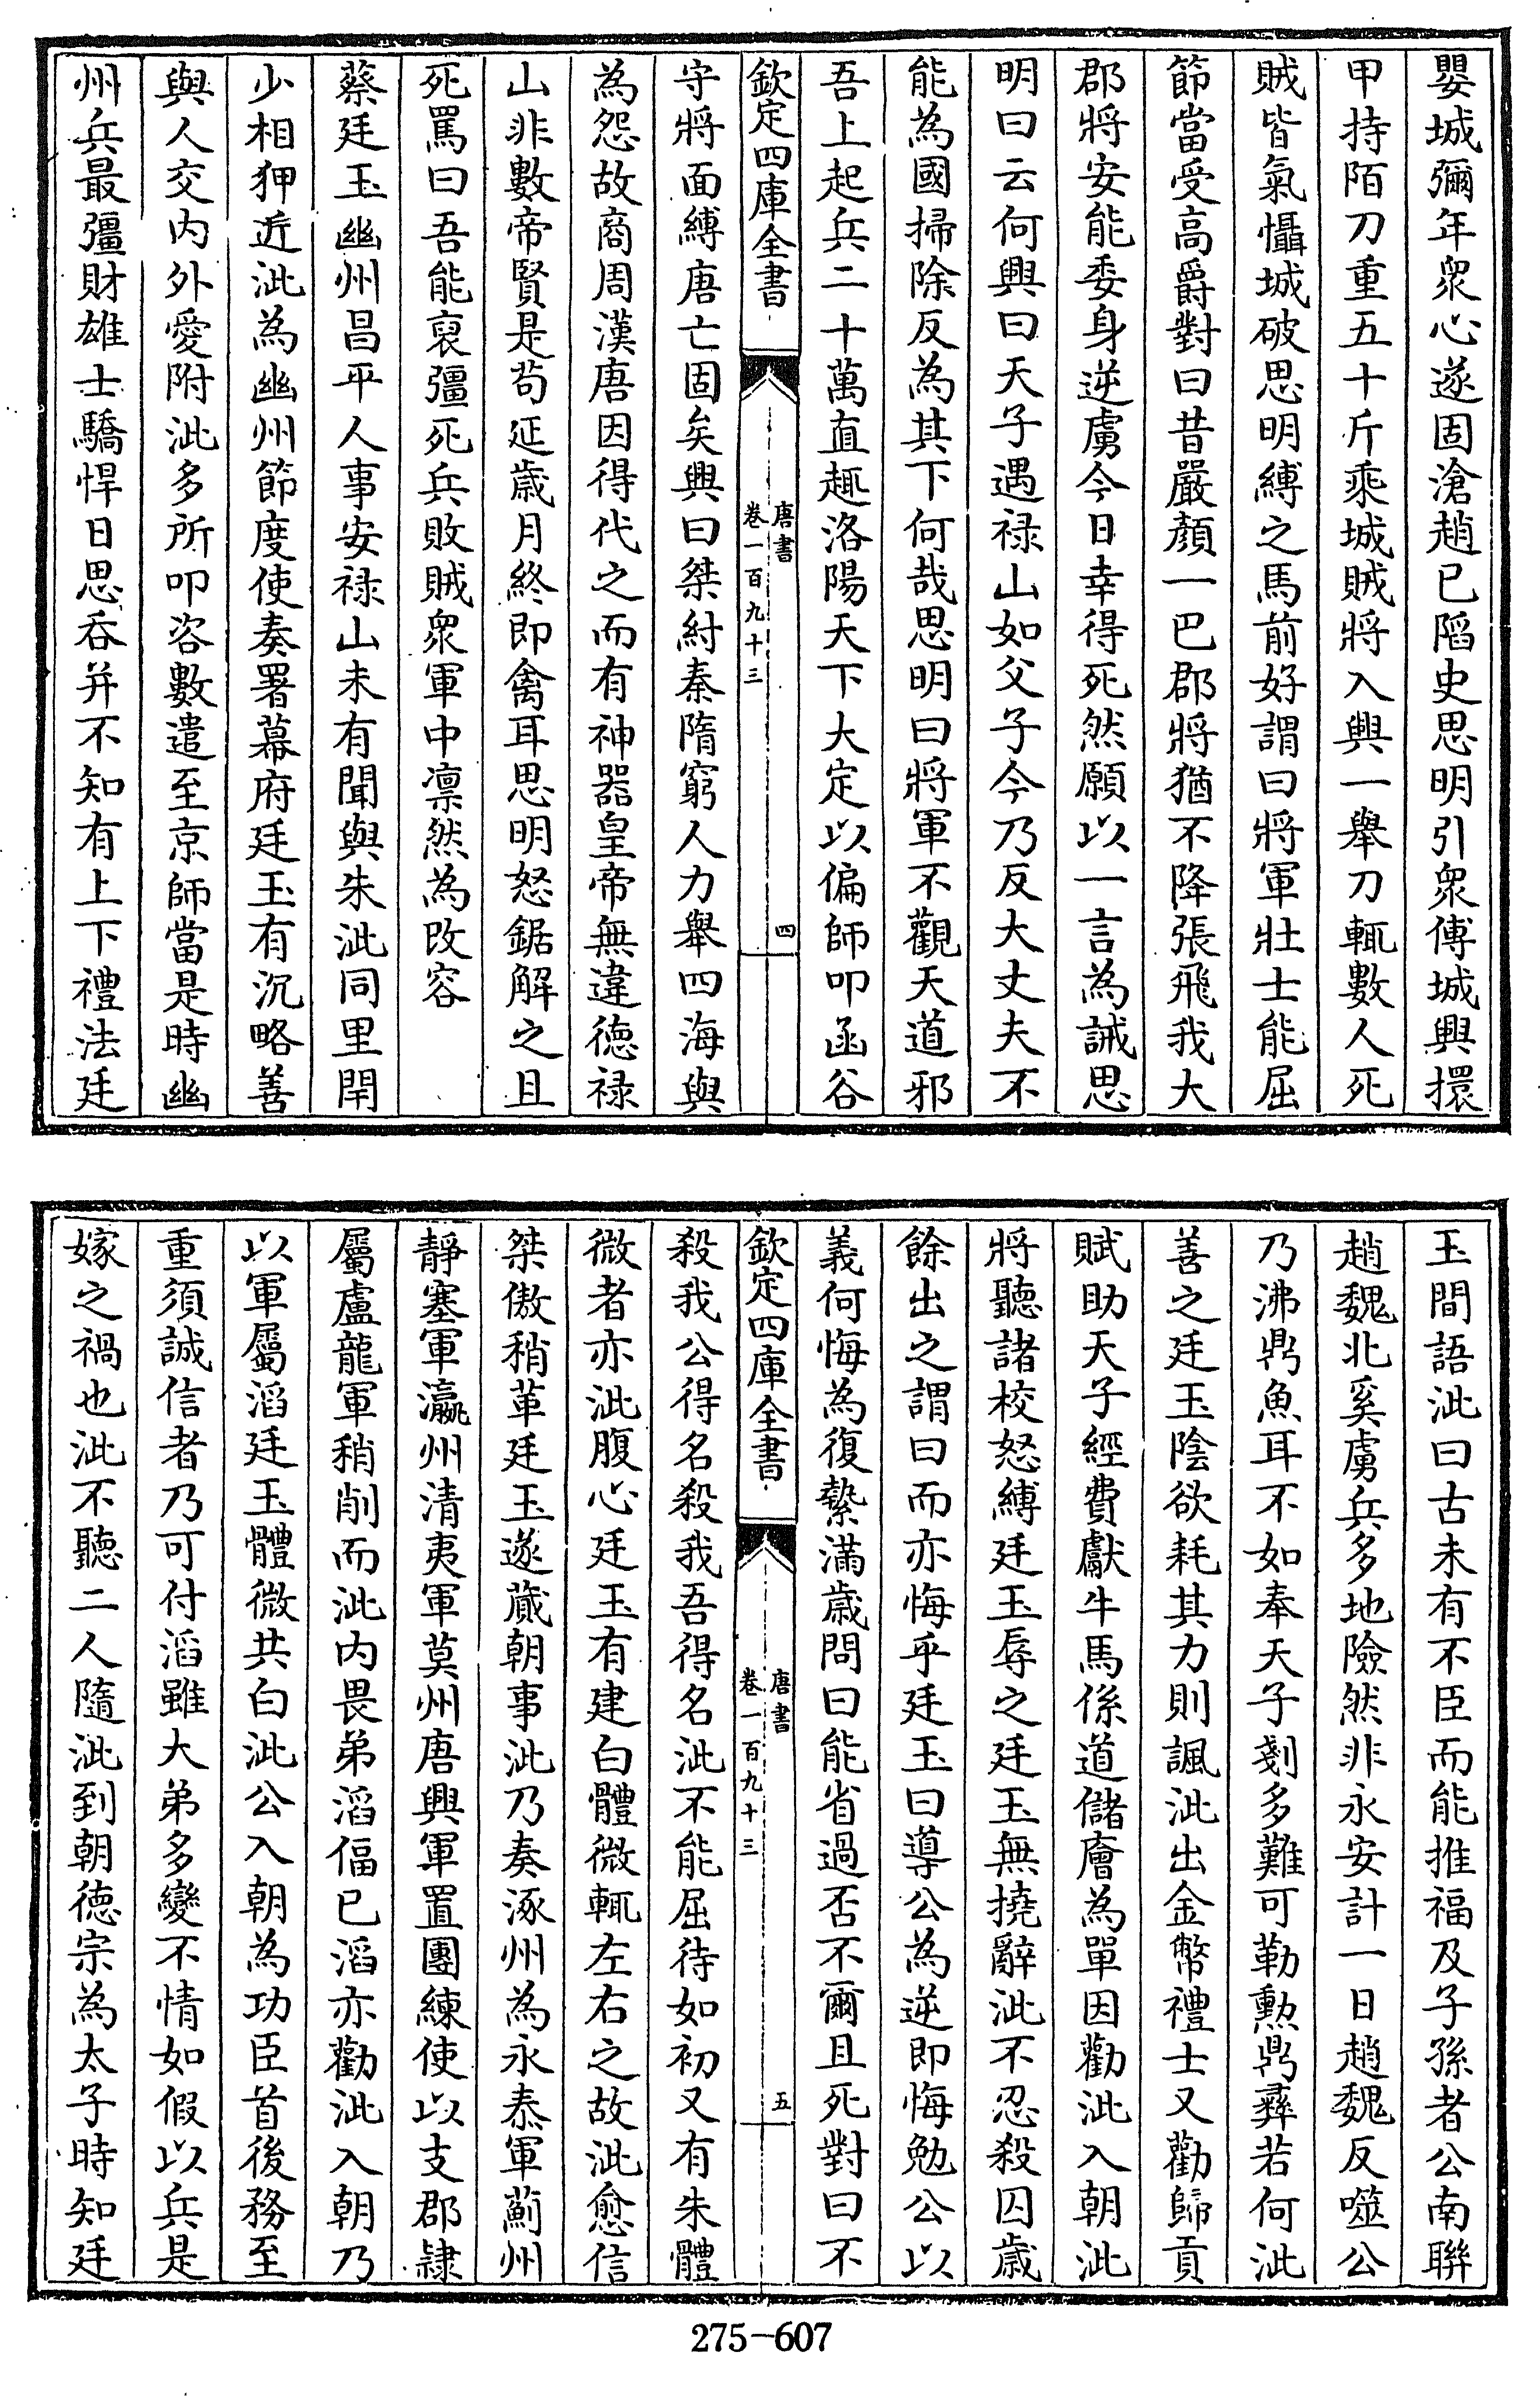 嬰城彌年衆心遂固滄趙已䧟史思明引衆傅城興擐
甲持陌刀重五十斤乘城賊將入興一舉刀輒數人死
賊皆氣懾城破思明縛之馬前好謂曰將軍壯士能屈
節當受高爵對曰昔嚴顔一巴郡將猶不降張飛我大
郡將安能委身逆虜今日幸得死然願以一言為誡思
明曰云何興曰天子遇禄山如父子今乃反大丈夫不
能為國掃除反為其下何哉思明曰將軍不觀天道邪
吾上起兵二十萬直趣洛陽天下大定以偏師叩函谷
欽定四庫全書
唐書
卷一百九十三
四
守將面縛唐亡固矣興曰桀紂秦隋窮人力舉四海與
為怨故商周漢唐因得代之而有神器皇帝無違德禄
山非數帝賢是苟延歲月終即禽耳思明怒鋸解之且
死罵曰吾能裒彊死兵敗賊衆軍中凛然為改容
蔡廷玉幽州昌平人事安禄山未有聞與朱泚同里閈
少相狎近泚為幽州節度使奏署幕府廷玉有沉略善
與人交内外愛附泚多所叩咨數遣至京師當是時幽
州兵最彊財雄士驕悍日思吞并不知有上下禮法廷
玉間語泚曰古未有不臣而能推福及子孫者公南聯
趙魏北奚虜兵多地險然非永安計一日趙魏反噬公
乃沸鼎魚耳不如奉天子剗多難可勒勲鼎彝若何泚
善之廷玉陰欲耗其力則諷泚出金幣禮士又勸歸貢
賦助天子經費獻牛馬係道儲廥為單因勸泚入朝泚
將聽諸校怒縛廷玉辱之廷玉無撓辭泚不忍殺囚歲
餘出之謂曰而亦悔乎廷玉曰導公為逆即悔勉公以
義何悔為復縶滿歲問曰能省過否不爾且死對曰不
欽定四庫全書
唐書
卷一百九十三
五
殺我公得名殺我吾得名泚不能屈待如初又有朱體
微者亦泚腹心廷玉有建白體微輒左右之故泚愈信
桀傲稍革廷玉遂蕆朝事泚乃奏涿州為永泰軍薊州
靜塞軍瀛州清夷軍莫州唐興軍置團練使以支郡隷
屬盧龍軍稍削而泚内畏弟滔偪已滔亦勸泚入朝乃
以軍屬滔廷玉體微共白泚公入朝為功臣首後務至
重須誠信者乃可付滔雖大弟多變不情如假以兵是
嫁之禍也泚不聽二人隨泚到朝德宗為太子時知廷
275-607